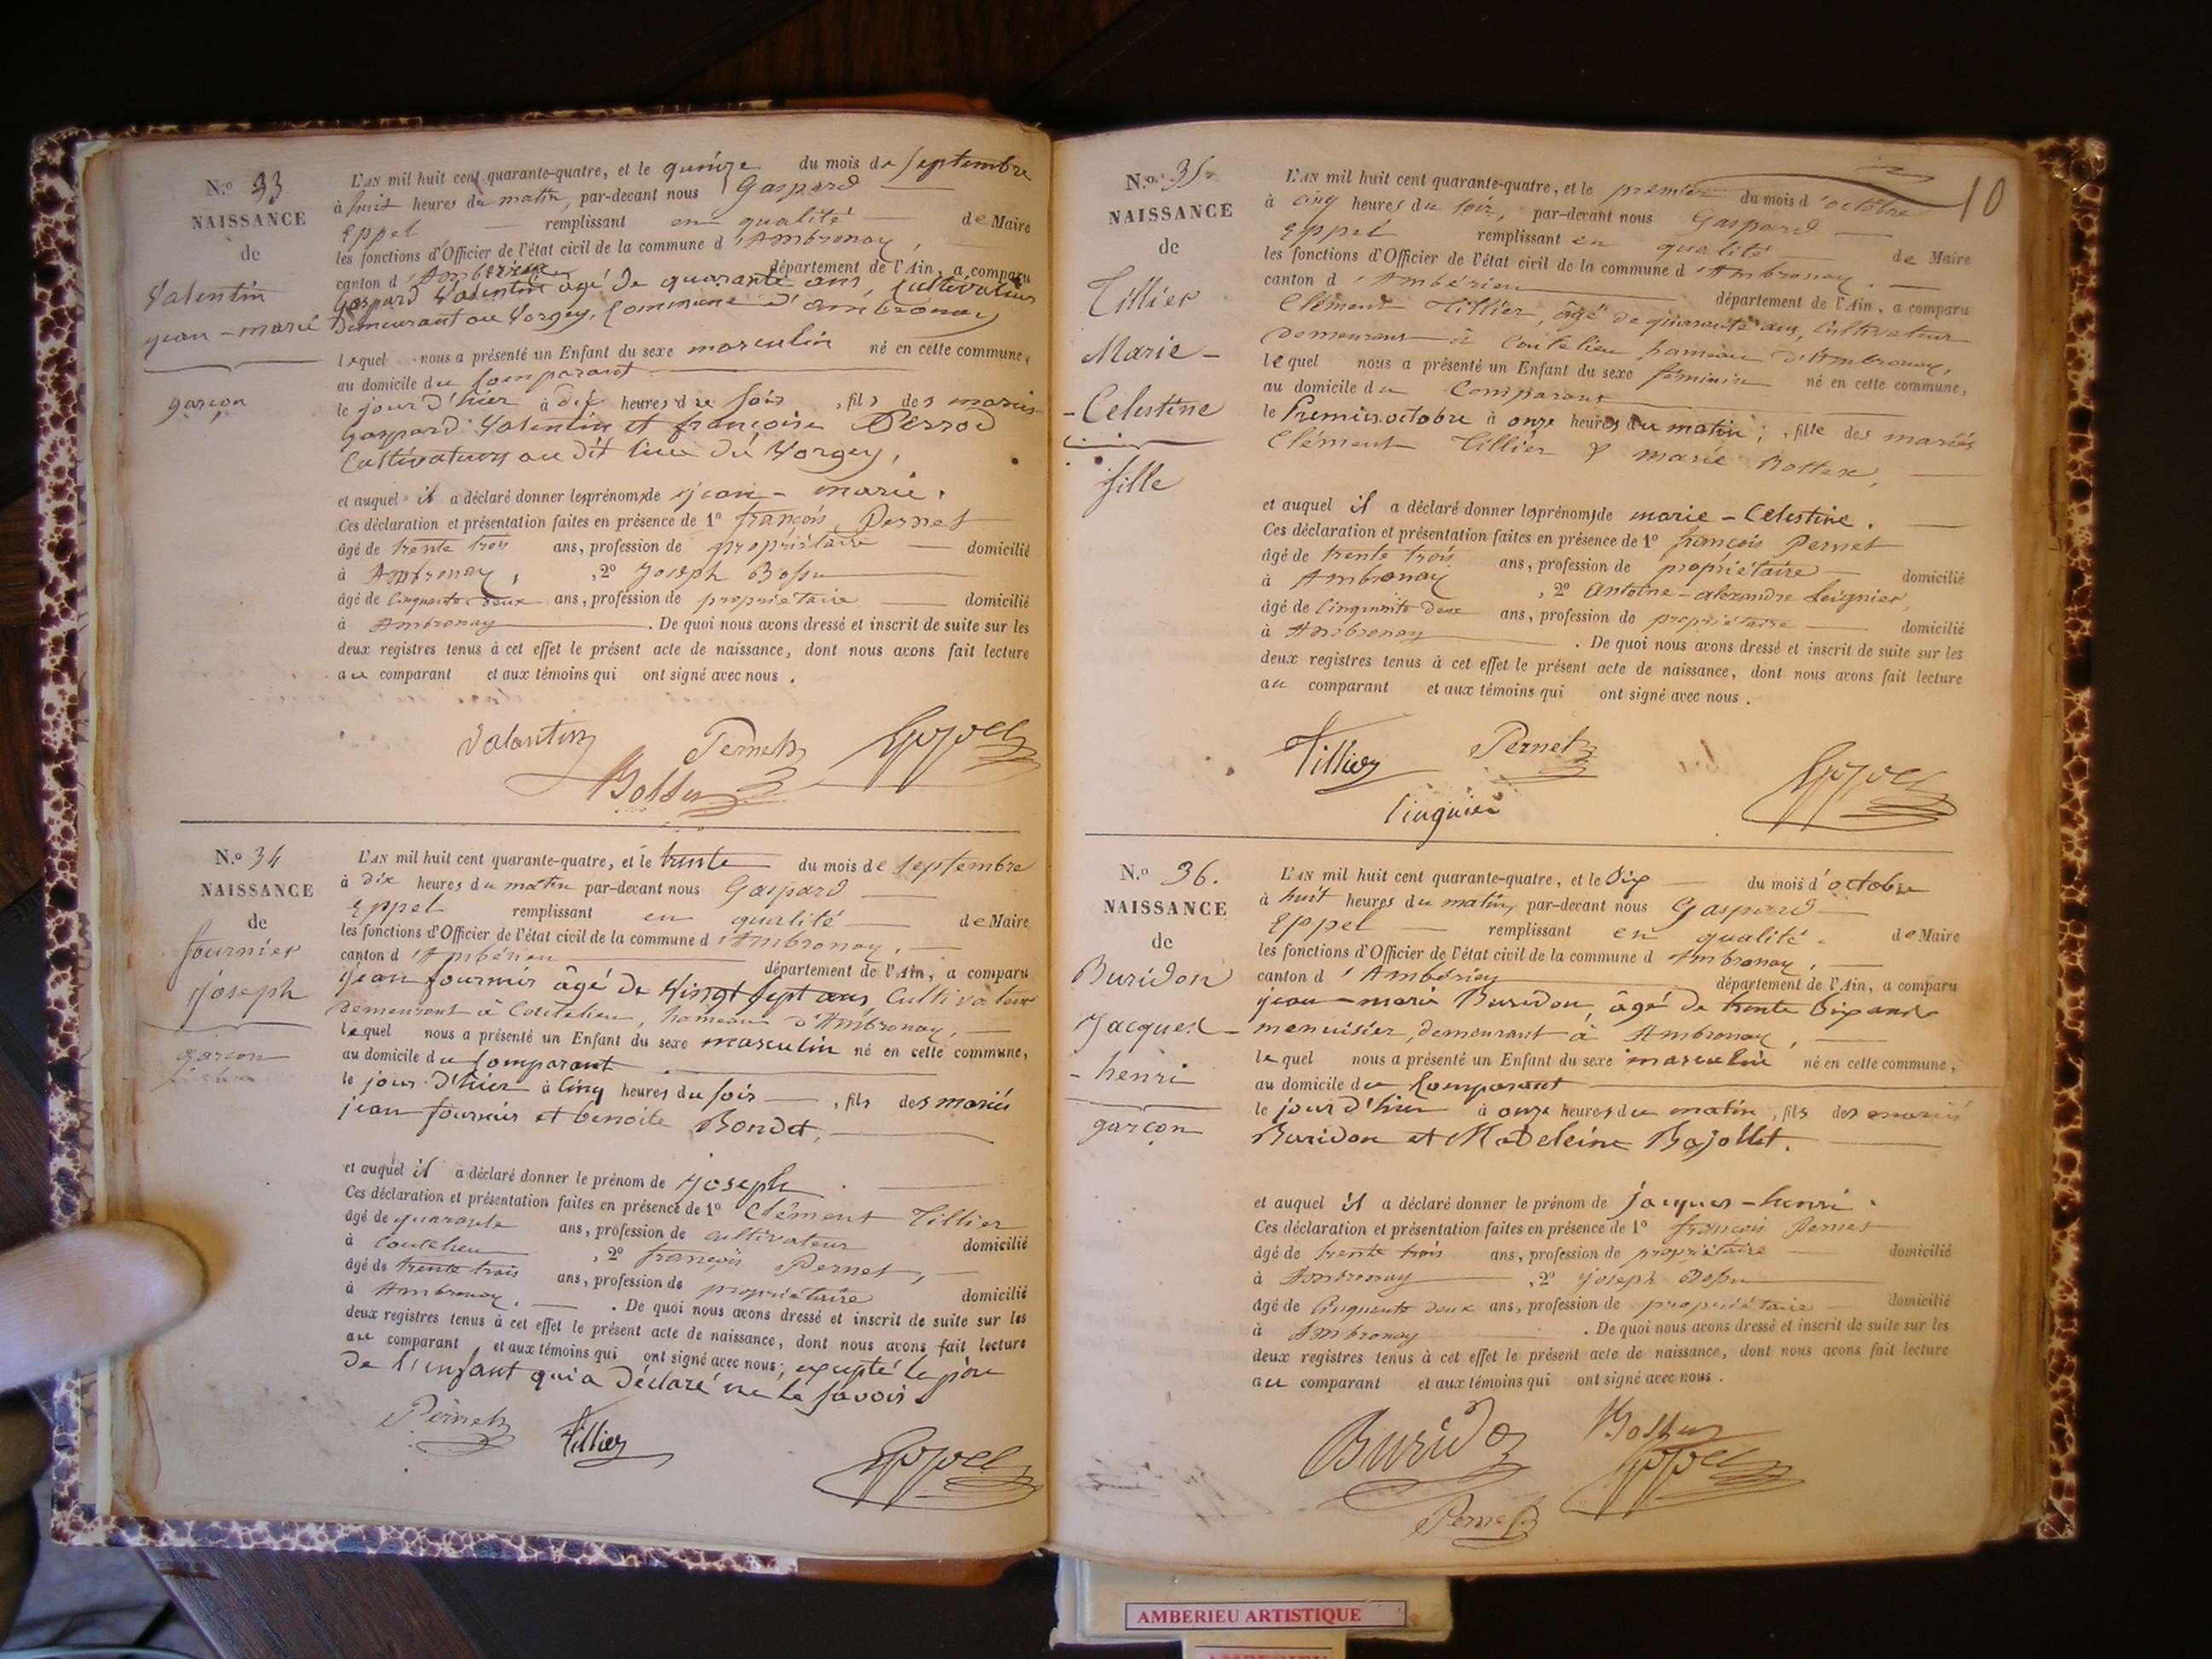 N.º 33
NAISSANCE
de
Valentin
jean-marie
garçon
L'AN mil huit cent quarante-quatre, et le quinze du mois de septembre
à huit heures du matin, par-devant nous Gaspard
Eppel remplissant en qualité de Maire
les fonctions d'Officier de l'état civil de la commune d'Ambronay,
canton d'Ambérieu département de l'Ain, a comparu
Gaspard Valentin agé de quarante ans, cultivateur
demeurant au Vorgey, commune d'ambronay
lequel nous a présenté un Enfant du sexe masculin né en cette commune,
au domicile du comparant
le jour d'hier à dix heures du soir, fils des mariés
Gaspard Valentin et françoise Perrod
Cultivateurs au dit lieu du Vorgey,
et auquel il a déclaré donner les prénoms de jean-marie.
Ces déclaration et présentation faites en présence de 1º françois Pernet
âgé de trente trois ans, profession de propriétaire domicilié
à Ambronay, , 2º Joseph Bossu
âgé de cinquante deux ans, profession de propriétaire domicilié
à Ambronay . De quoi nous avons dressé et inscrit de suite sur les
deux registres tenus à cet effet le présent acte de naissance, dont nous avons fait lecture
au comparant et aux témoins qui ont signé avec nous.
Valantin Pernet Eppel
Bossu
N.º 34
NAISSANCE
de
fournier
joseph
garçon
L'AN mil huit cent quarante-quatre, et le trente du mois de septembre
à dix heures du matin par-devant nous Gaspard
Eppel remplissant en qualité de Maire
les fonctions d'Officier de l'état civil de la commune d'Ambronay,
canton d'Ambérieu département de l'Ain, a comparu
jean fournier âgé de vingt sept ans, cultivateur
demeurant à Coutelieu, hameau d'Ambronay,
lequel nous a présenté un Enfant du sexe masculin né en cette commune,
au domicile du comparant
le jour d'hier à cinq heures du soir, fils des mariés
jean fournier et benoite Bondet,
et auquel il a déclaré donner le prénom de joseph
Ces déclaration et présentation faites en présence de 1º Clément Tillier
âgé de quarante ans, profession de cultivateur domicilié
à coutelieu , 2º françois Pernet,
âgé de trente trois ans, profession de propriétaire domicilié
à Ambronay. . De quoi nous avons dressé et inscrit de suite sur les
deux registres tenus à cet effet le présent acte de naissance, dont nous avons fait lecture
au comparant et aux témoins qui ont signé avec nous; excepté le père
de l'enfant qui a déclaré ne le savoir
Pernet Tillier Eppel
10
N.º 35
NAISSANCE
de
Tillier
Marie-
-Celestine
fille
L'AN mil huit cent quarante-quatre, et le premier du mois d'octobre
à cinq heures du soir, par-devant nous Gaspard
Eppel remplissant en qualité de Maire
les fonctions d'Officier de l'état civil de la commune d'Ambronay.
canton d'Ambérieu département de l'Ain, a comparu
Clément Tillier, âgé de quarante ans, cultivateur
demeurant à Coutelieu hameau d'Ambronay,
lequel nous a présenté un Enfant du sexe féminin né en cette commune,
au domicile du comparant
le Premier octobre à onze heures du matin; , fille des mariés
Clément Tillier & marie Bottex,
et auquel il a déclaré donner les prénoms de marie-Celestine.
Ces déclaration et présentation faites en présence de 1º françois Pernet
âgé de trente trois ans, profession de propriétaire domicilié
à Ambronay , 2º Antoine-alexandre Leignier,
âgé de cinquante deux ans, profession de propriétaire domicilié
à Ambronay . De quoi nous avons dressé et inscrit de suite sur les
deux registres tenus à cet effet le présent acte de naissance, dont nous avons fait lecture
au comparant et aux témoins qui ont signé avec nous.
Tillier Pernet
Eppel
N.º 36.
NAISSANCE
de
Buridon
Jacques-
-henri
garçon
L'AN mil huit cent quarante-quatre, et le dix du mois d'octobre
à huit heures du matin, par-devant nous Gaspard
Eppel remplissant en qualité de Maire
les fonctions d'Officier de l'état civil de la commune d'Ambronay,
canton d'Ambérieu département de l'Ain, a comparu
jean-marie Buridon, âgé de trente dix ans
menuisier, demeurant à Ambronay,
lequel nous a présenté un Enfant du sexe masculin né en cette commune,
au domicile du comparant
le jour d'hier à onze heures du matin, fils des mariés
Buridon et Madeleine Bajollet.
et auquel il a déclaré donner le prénom de jacques-henri.
Ces déclaration et présentation faites en présence de 1º françois Pernet
âgé de trente trois ans, profession de propriétaire domicilié
à Ambronay , 2º joseph Bossu
âgé de cinquante deux ans, profession de propriétaire domicilié
à Ambronay . De quoi nous avons dressé et inscrit de suite sur les
deux registres tenus à cet effet le présent acte de naissance, dont nous avons fait lecture
au comparant et aux témoins qui ont signé avec nous.
Buridon Bossu
Eppel
Pernet
AMBERIEU ARTISTIQUE
AMBERIEU